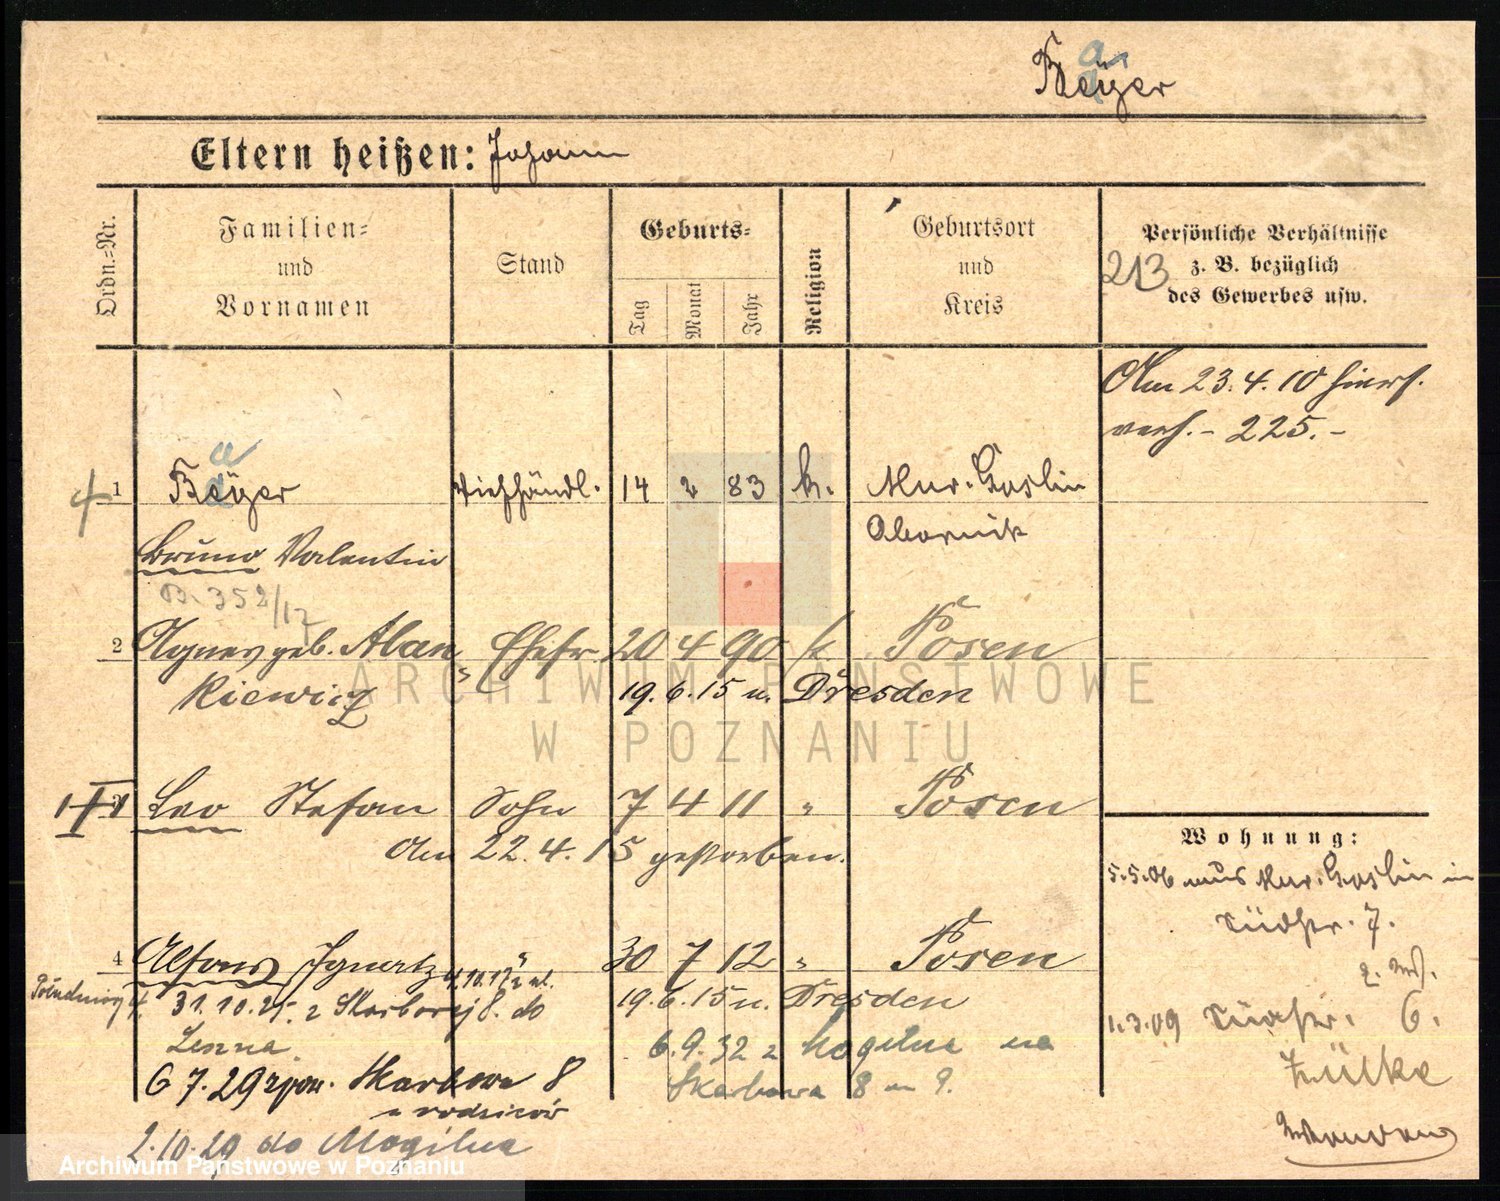 Bayer
Eltern heißen: Johann
Ordn.-Nr.
Familien-
und
Vornamen
Stand
Geburts-
Tag
Monat
Jahr
Religion
Geburtsort
und
Kreis
Persönliche Verhältnisse
z. B. bezüglich
des Gewerbes usw.
213
Am 23. 4. 10 hiers.
verh. - 225. -
4 1 Viehhändl. 14 2 83 k. Mur. Goslin
Bruno Valentin Obornik
B. 352/17
2 Agnes geb. Alan Ehefr. 20 4 90 k. Posen
kiewicz 19. 6. 15 n. Dresden
Leo Stefan Sohn 7 4 11 " Posen
Am 22. 4. 15 gestorben.
Wohnung:
5.5.06 aus Mur. Goslin in
Südstr. 7.
4 Alfons Ignatz " 30 7 12 " Posen
31. 10. 25. z Skarbowej 8. do 19. 6. 15 n. Dresden
1.3.09 Südstr. 6.
6. 9. 32 z Mogilna na
6 7. 29 Skarbowa 8 Skarbowa 8 m 9.
u rodziców
2. 10. 29 do Mogilna
ARCHIWUM PAŃSTWOWE
W POZNANIU
Archiwum Państwowe w Poznaniu